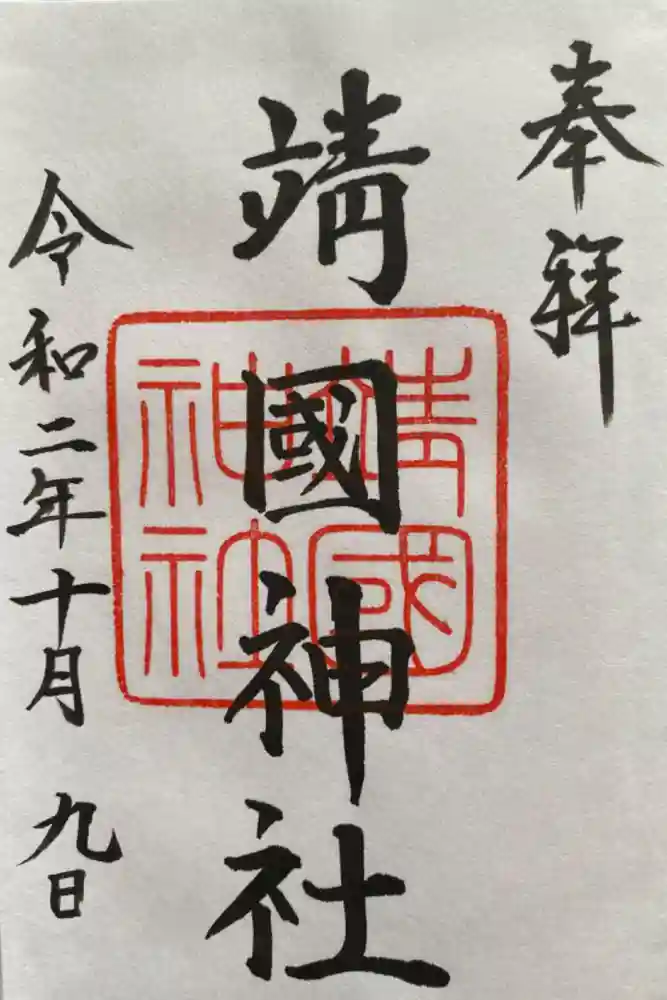 奉拜
靖國神社
靖國
神社
令和二年十月九日